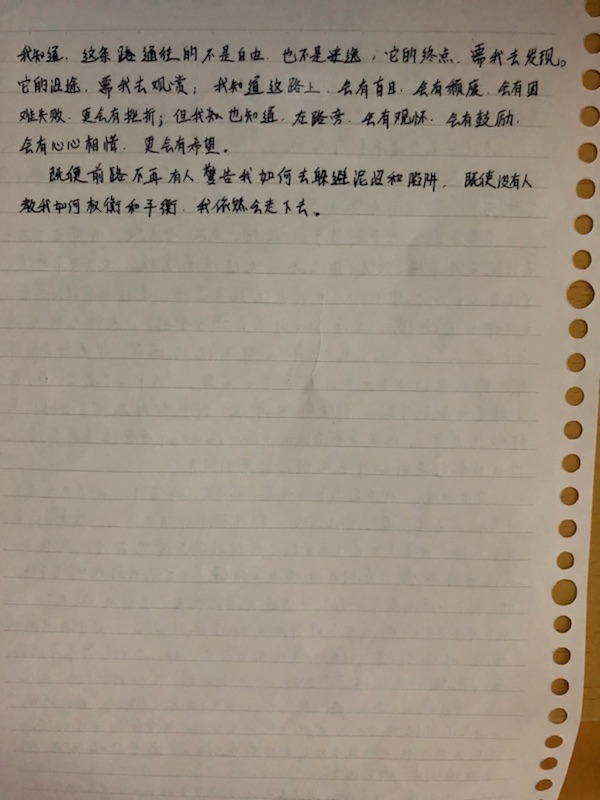 我知道，这条路通往的不是自由，也不是安逸，它的终点，需我去发现。
它的沿途，需我去观赏；我知道这路上，会有盲目，会有颓废，会有困
难失败，更会有挫折；但我知也知道，在路旁，会有观怀，会有鼓励，
会有心心相惜，更会有希望。
既便前路不再有人警告我如何去躲避泥沼和陷阱，既使没有人
教我如何权衡和平衡，我依然会走下去。